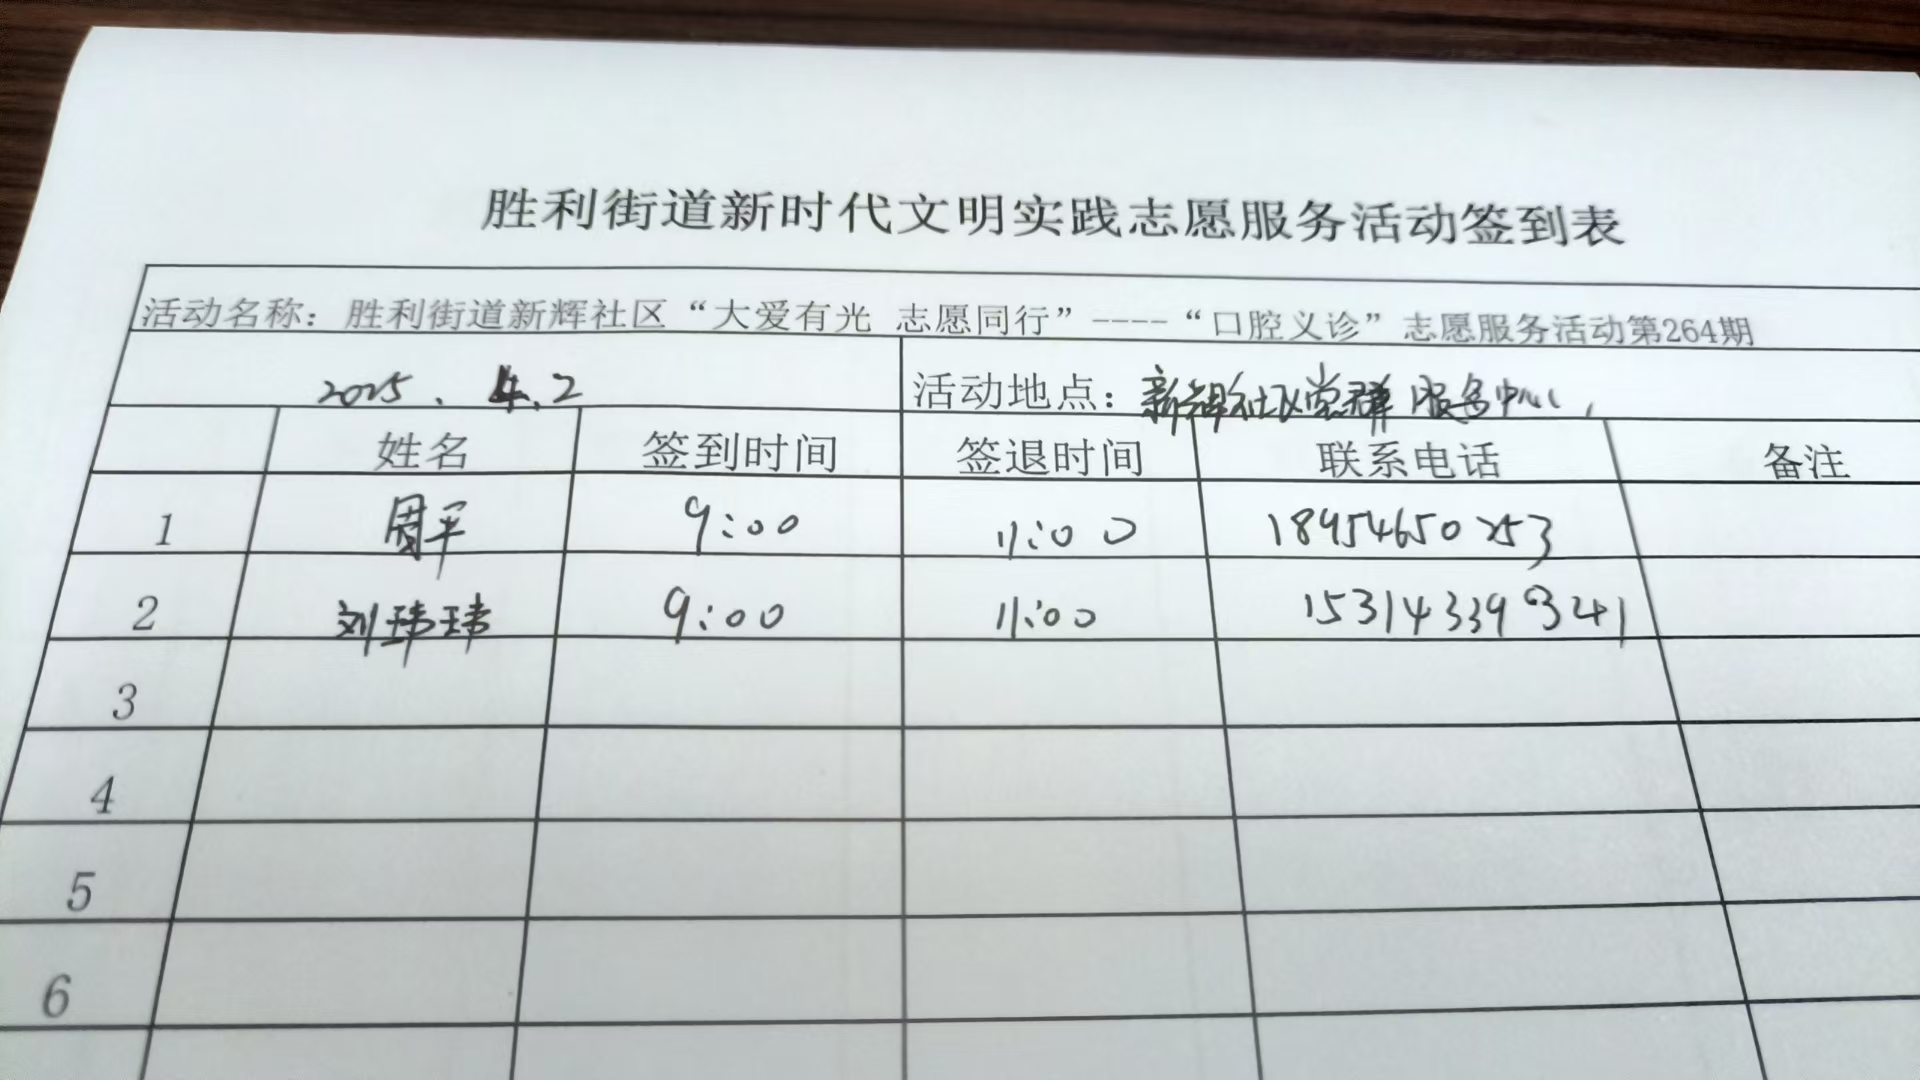 胜利街道新时代文明实践志愿服务活动签到表
活动名称：胜利街道新辉社区“大爱有光 志愿同行”----“口腔义诊”志愿服务活动第264期
2025.4.2 活动地点：新辉社区党群服务中心
姓名 签到时间 签退时间 联系电话 备注
1 周平 9:00 11:00 18954650253
2 刘玮玮 9:00 11:00 15314339341
3
4
5
6